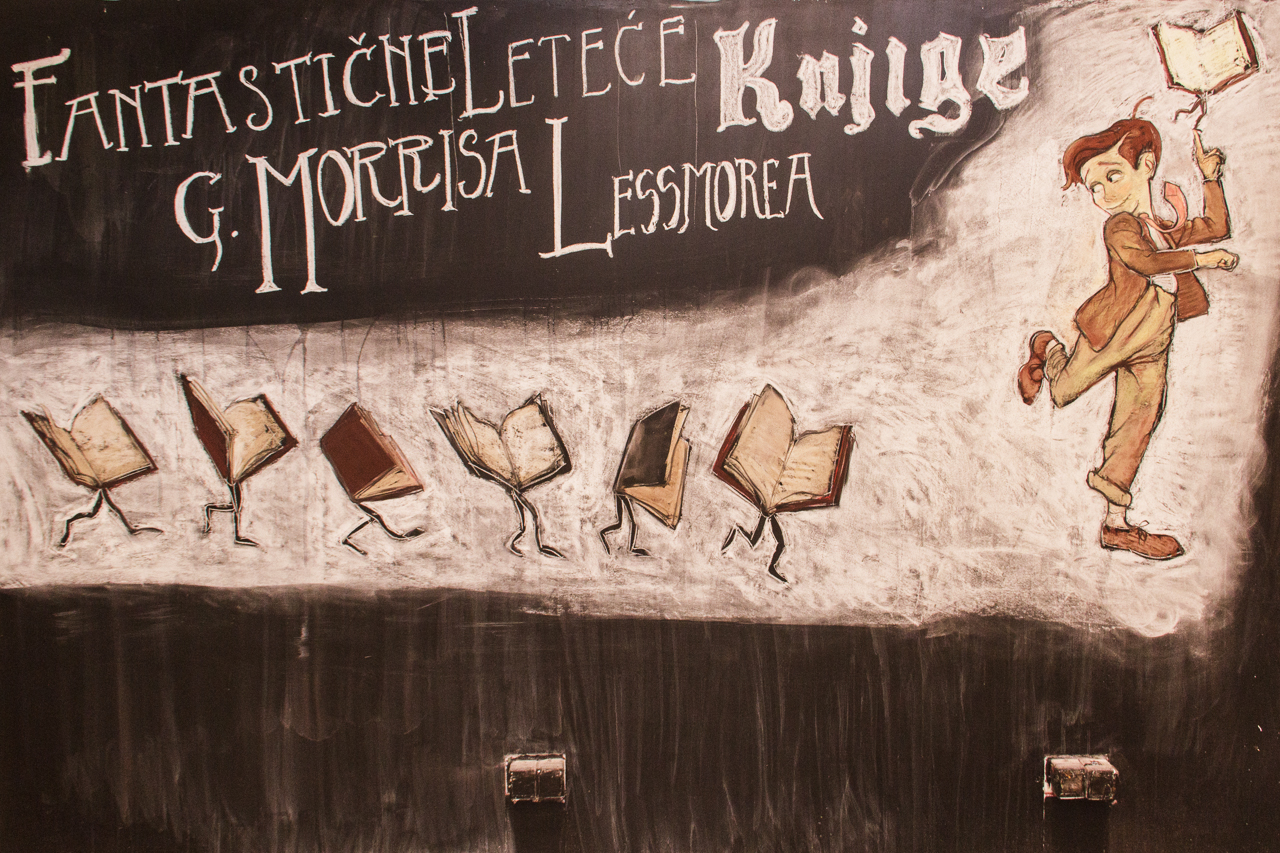 FANTASTIČNE LETEĆE Knjige
G. MORRISA LESSMOREA